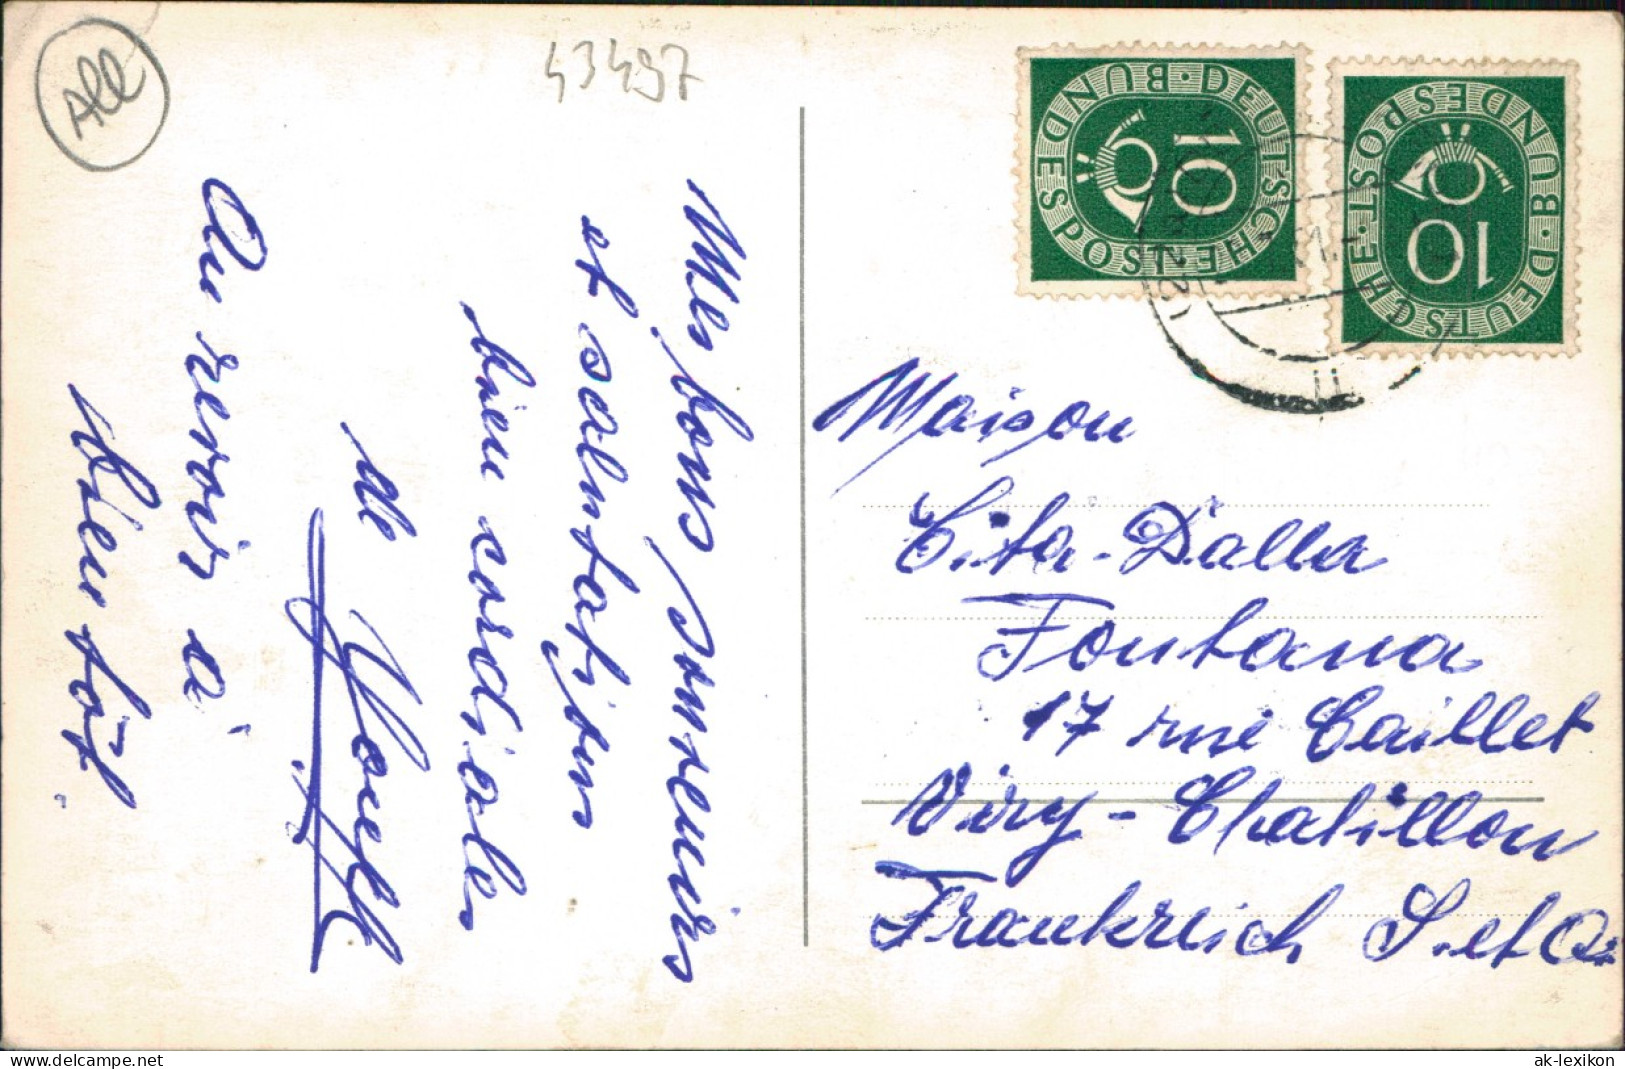 All
43497
Mes bons souveuirs
et salutatijons
bien cordiales
de
Au revoir à
bien tôt.
DEUTSCHE BUNDESPOST
10
DEUTSCHE BUNDESPOST
10
Maison
Cita-Dalla
Fontana
17 rue Caillet
Viry-Chatillon
Frankreich S.et O.
delcampe.net
ak-lexikon